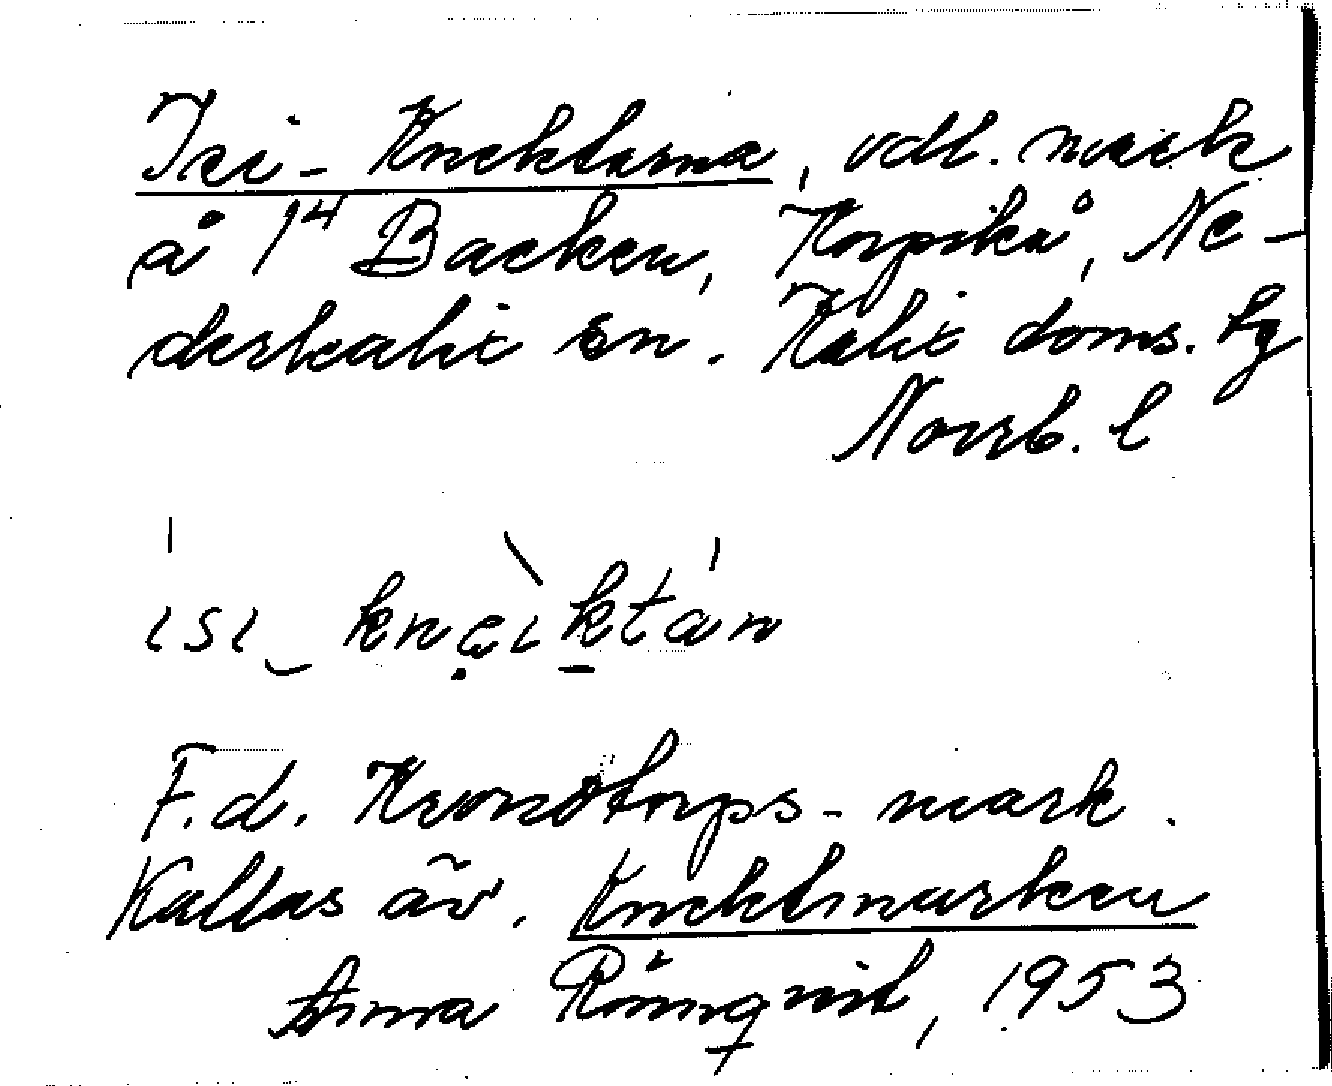 Isi-Knektarna, odl. mark
å 1⁴ Backen, Korpikå, Ne-
derkalix sn. Kalix doms. tg
Norrb. l
ısı_ knẹıktan
F.d. Kronotorps-mark.
Kallas äv. Knektmarken
Anna Rönnqvist, 1953